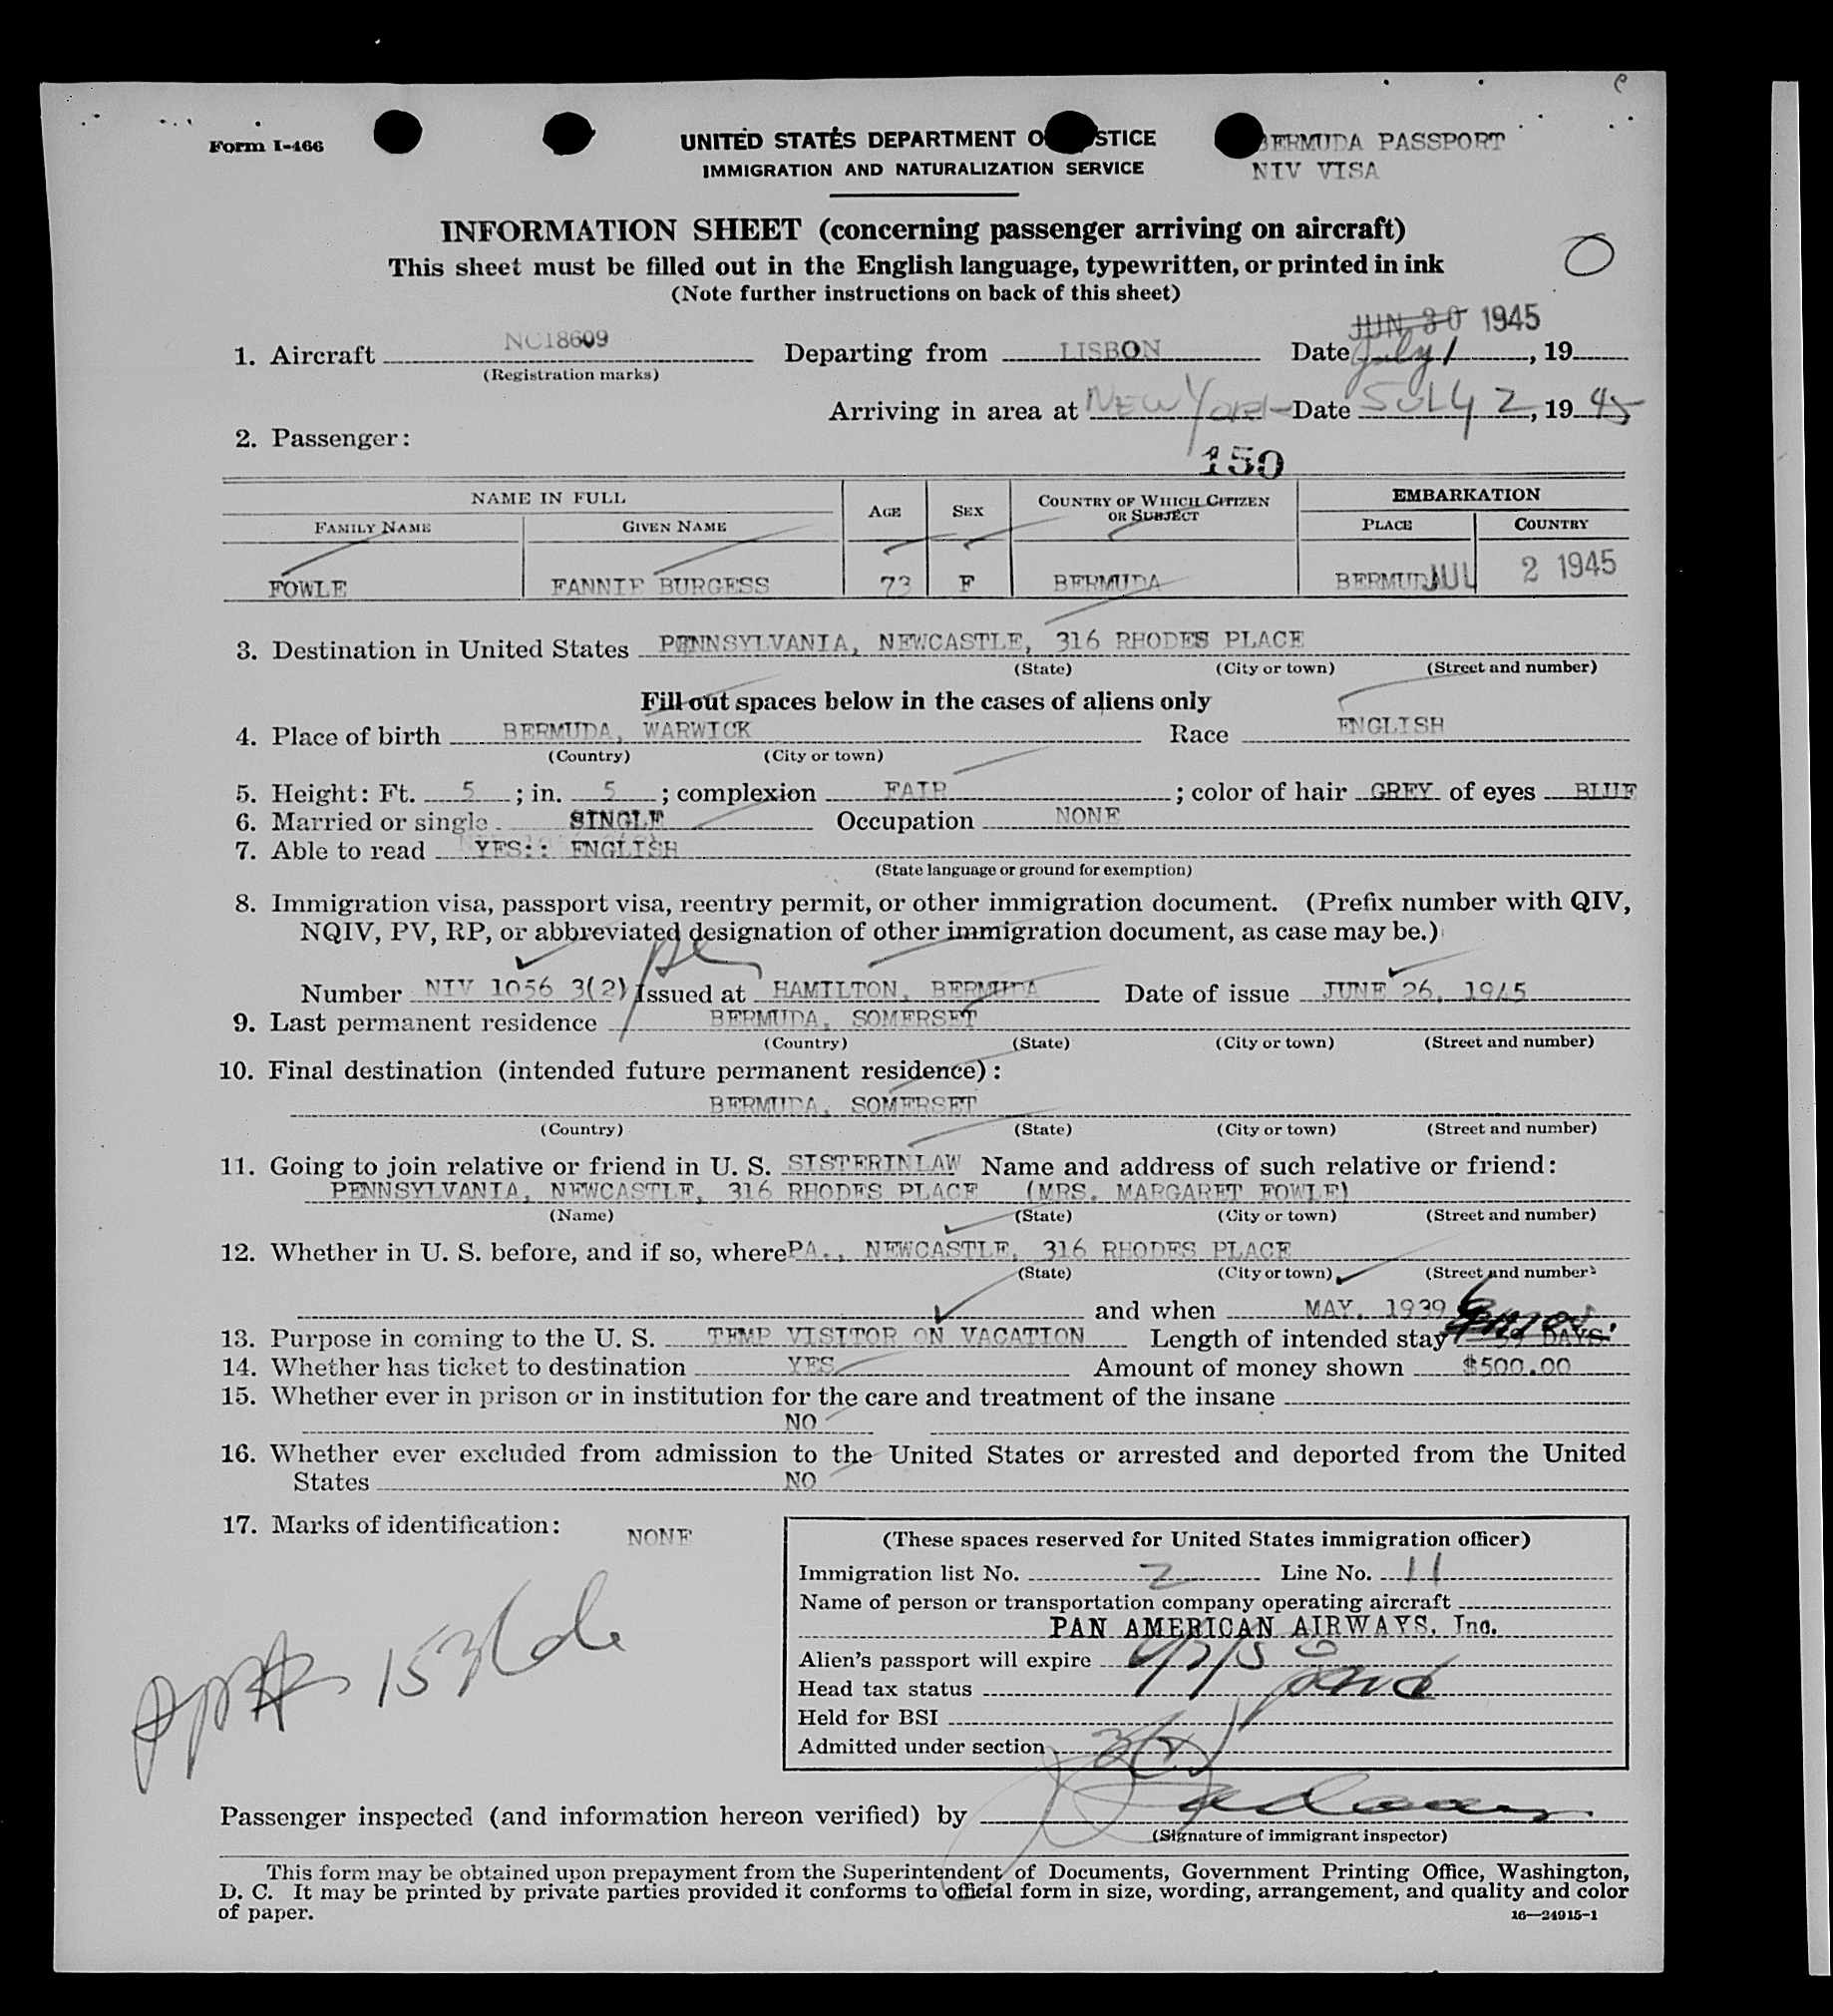 Form I-466
UNITED STATES DEPARTMENT O STICE
IMMIGRATION AND NATURALIZATION SERVICE
BERMUDA PASSPORT
NIV VISA
INFORMATION SHEET (concerning passenger arriving on aircraft)
This sheet must be filled out in the English language, typewritten, or printed in ink
(Note further instructions on back of this sheet)
JUN 30 1945
1. Aircraft NC18609 Departing from LISBON Date July 1, 19
(Registration marks)
Arriving in area at NEW York Date JULY 2, 19 45
2. Passenger:
150
NAME IN FULL
FAMILY NAME GIVEN NAME AGE SEX COUNTRY OF WHICH CITIZEN OR SUBJECT EMBARKATION
PLACE COUNTRY
FOWLE FANNIE BURGESS 73 F BERMUDA BERMUDA JUL 2 1945
3. Destination in United States PENNSYLVANIA, NEWCASTLE, 316 RHODES PLACE
(State) (City or town) (Street and number)
Fill out spaces below in the cases of aliens only
4. Place of birth BERMUDA, WARWICK Race ENGLISH
(Country) (City or town)
5. Height: Ft. 5; in. 5; complexion FAIR; color of hair GREY of eyes BLUE
6. Married or single SINGLE Occupation NONE
7. Able to read YES:: ENGLISH
(State language or ground for exemption)
8. Immigration visa, passport visa, reentry permit, or other immigration document. (Prefix number with QIV,
NQIV, PV, RP, or abbreviated designation of other immigration document, as case may be.)
Number NIV 1056 3(2) Issued at HAMILTON, BERMUDA Date of issue JUNE 26, 1945
9. Last permanent residence BERMUDA, SOMERSET
(Country) (State) (City or town) (Street and number)
10. Final destination (intended future permanent residence):
BERMUDA, SOMERSET
(Country) (State) (City or town) (Street and number)
11. Going to join relative or friend in U. S. SISTERINLAW Name and address of such relative or friend:
PENNSYLVANIA, NEWCASTLE, 316 RHODES PLACE (MRS. MARGARET FOWLE)
(Name) (State) (City or town) (Street and number)
12. Whether in U. S. before, and if so, where PA., NEWCASTLE, 316 RHODES PLACE
(State) (City or town) (Street and number)
and when MAY, 1939
13. Purpose in coming to the U. S. TEMP VISITOR ON VACATION Length of intended stay DAYS
14. Whether has ticket to destination YES Amount of money shown $500.00
15. Whether ever in prison or in institution for the care and treatment of the insane
NO
16. Whether ever excluded from admission to the United States or arrested and deported from the United
States NO
17. Marks of identification: NONE
(These spaces reserved for United States immigration officer)
Immigration list No. 2 Line No. 11
Name of person or transportation company operating aircraft
PAN AMERICAN AIRWAYS, Inc.
Alien's passport will expire
Head tax status
Held for BSI
Admitted under section 3(2)
Passenger inspected (and information hereon verified) by
(Signature of immigrant inspector)
This form may be obtained upon prepayment from the Superintendent of Documents, Government Printing Office, Washington,
D. C. It may be printed by private parties provided it conforms to official form in size, wording, arrangement, and quality and color
of paper.
16—24915-1